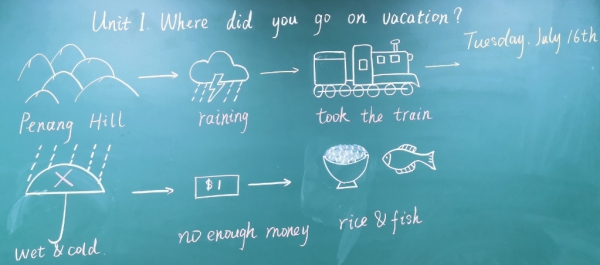 Unit 1. Where did you go on vacation?
Penang Hill
raining
took the train
Tuesday, July 16th
wet & cold
$1
no enough money
rice & fish